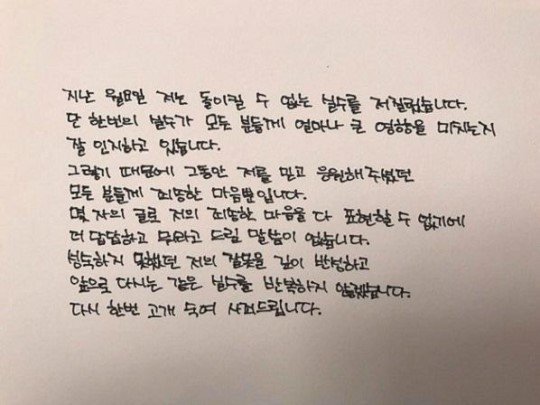 지난 월요일 저는 돌이킬 수 없는 실수를 저질렀습니다.
단 한번의 실수가 모든 분들께 얼마나 큰 영향을 미치는지
잘 인지하고 있습니다.
그렇기 때문에 그동안 저를 믿고 응원해주셨던
모든 분들께 죄송한 마음뿐입니다.
몇 자의 글로 저의 죄송한 마음을 다 표현할 수 없기에
더 답답하고 무라고 드릴 말씀이 없습니다.
성숙하지 못했던 저의 잘못을 깊이 반성하고
앞으로 다시는 같은 실수를 반복하지 않겠습니다.
다시 한번 고개 숙여 사과드립니다.